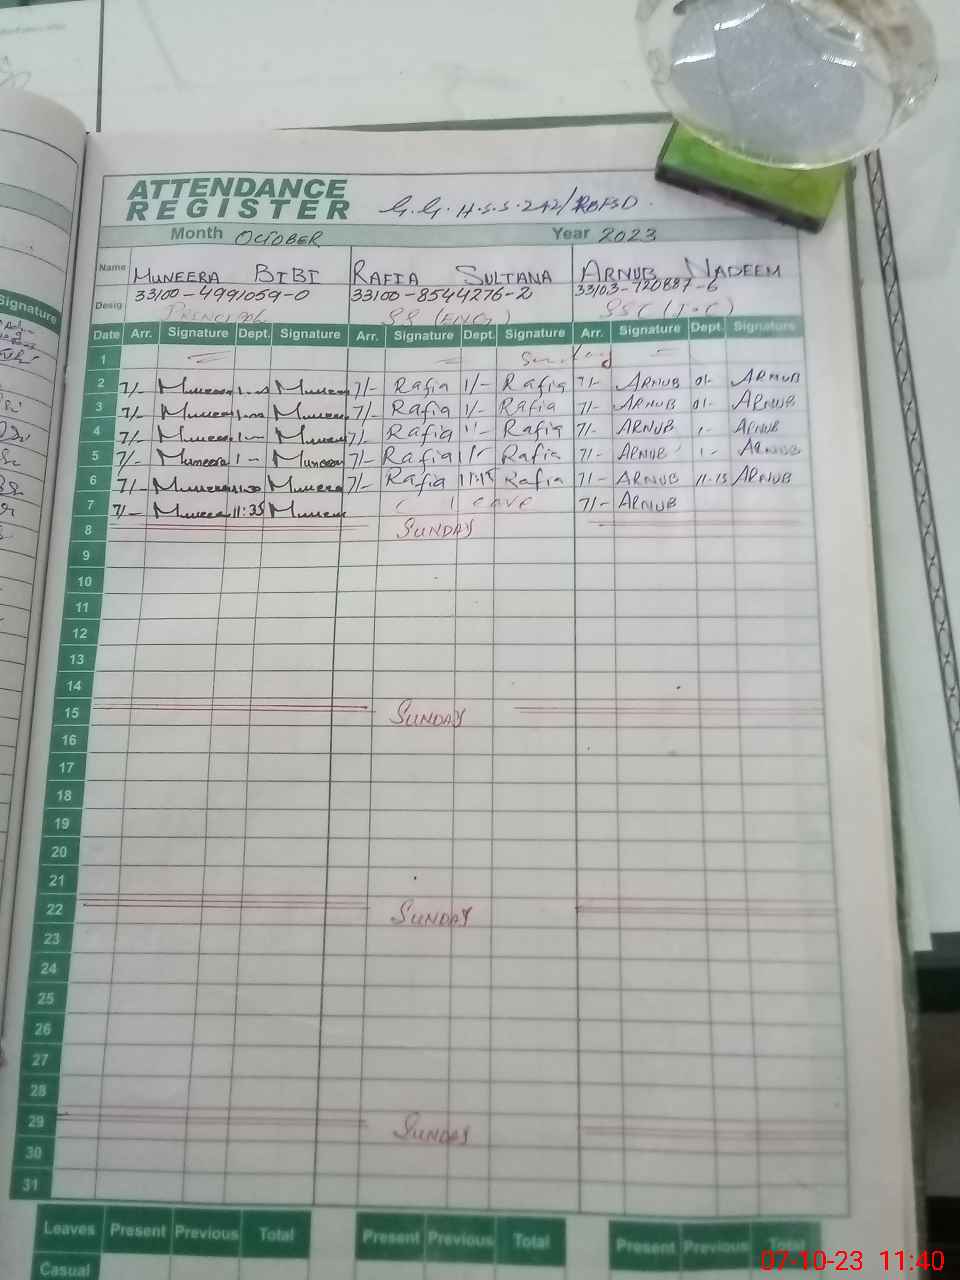 ATTENDANCE
REGISTER G.G.H.S.S. 242/RB FSD.
Month OCTOBER Year 2023
Name MUNEERA BIBI RAFIA SULTANA ARNUB NADEEM
Desig 33100-4991059-0 33100-8544276-2 33103-720887-6
PRINCIPAL SS (ENG) SSE (I-C)
Signature
Date Arr. Signature Dept. Signature Arr. Signature Dept. Signature Arr. Signature Dept. Signature
1 Sunday
2 7/- Muneera 1-00 Muneera 7/- Rafia 1/- Rafia 7/- ARNUB 01- ARNUB
3 7/- Muneera 1-00 Muneera 7/- Rafia 1/- Rafia 7/- ARNUB 01- ARNUB
4 7/- Muneera 1- Muneera 7/- Rafia Rafia 7/- ARNUB 1- ARNUB
5 7/- Muneera 1- Muneera 7/- Rafia Rafia 7/- ARNUB 1- ARNUB
6 7/- Muneera Muneera 7/- Rafia 11:15 Rafia 7/- ARNUB 11-15 ARNUB
7 7/- Muneera 11:35 Muneera Leave 7/- ARNUB
8 SUNDAY
9
10
11
12
13
14
15 SUNDAY
16
17
18
19
20
21
22 SUNDAY
23
24
25
26
27
28
29 SUNDAY
30
31
Leaves Present Previous Total Present Previous Total Present Previous Total
Casual
07-10-23 11:40